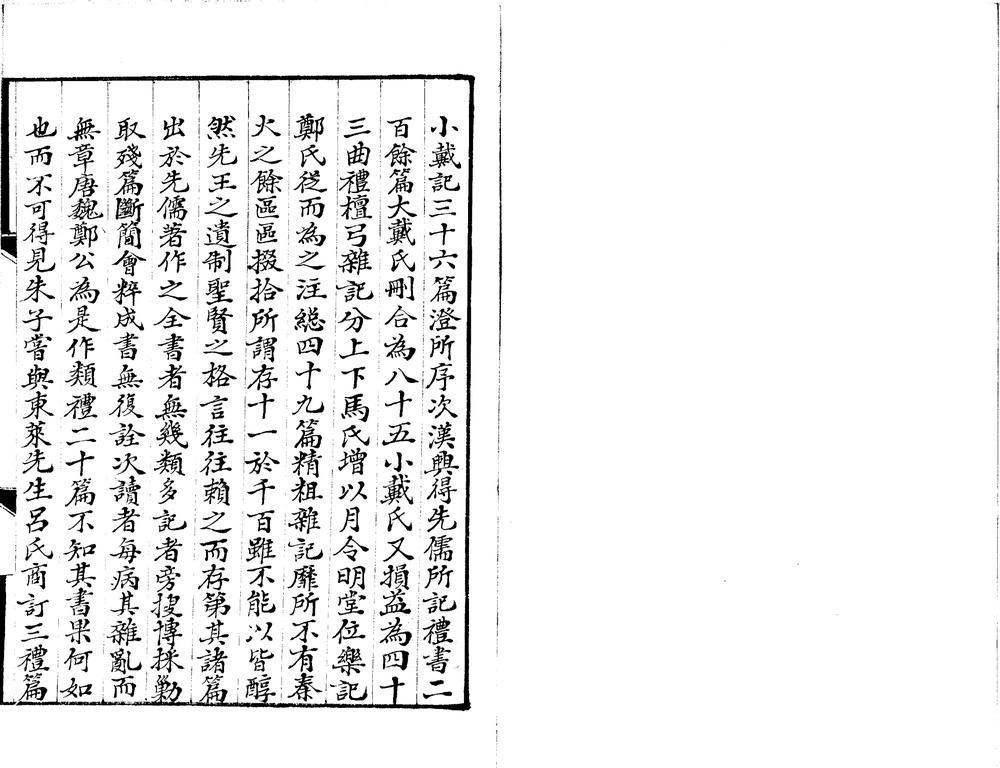 小戴記三十六篇澄所序次漢興得先儒所記禮書二
百餘篇大戴氏刪合為八十五小戴氏又損益為四十
三曲禮檀弓雜記分上下馬氏增以月令明堂位樂記
鄭氏從而為之注總四十九篇精粗雜記靡所不有秦
火之餘區區掇拾所謂存十一於千百雖不能以皆醇
然先王之遺制聖賢之格言往往賴之而存第其諸篇
出於先儒著作之全書者無幾類多記者旁搜博採勦
取殘篇斷簡會粹成書無復詮次讀者每病其雜亂而
無章唐魏鄭公為是作類禮二十篇不知其書果何如
也而不可得見朱子嘗與東萊先生呂氏商訂三禮篇